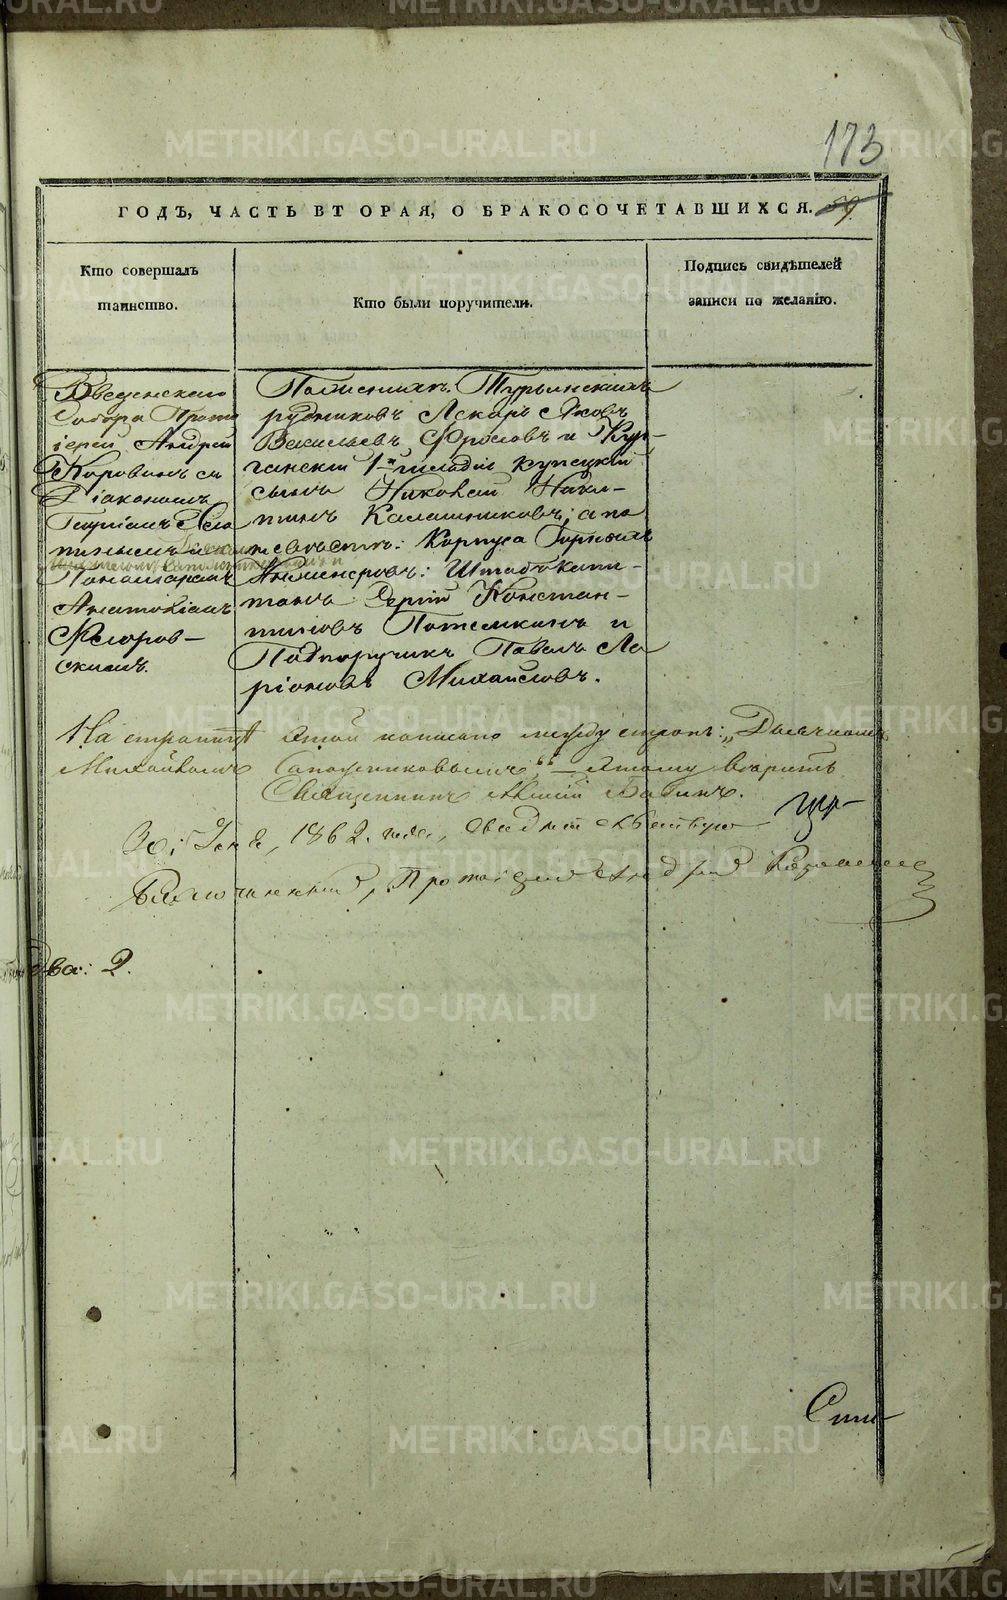 173
ГОДЪ, ЧАСТЬ ВТОРАЯ, О БРАКОСОЧЕТАВШИХСЯ. 59.
Кто совершалъ
таинство.
Кто были поручители.
Подпись свидѣтелей
записи по желанію.
Введенскаго
Собора Прото
іерей Андрей
Коровинъ съ
Діакономъ
Георгіемъ
и
Пономаремъ
Анатоліемъ
Флоров-
скимъ.
По женихѣ: Турьинскихъ
рудниковъ Лекарь Яковъ
Васильевъ Фроловъ и Кур-
ганскій 1й гильдіи купецкій
сынъ Николай Ники-
тинъ Калашниковъ; а по
невѣстѣ: Корпуса Горныхъ
Инженеровъ: Штабсъ-капи-
танъ Сергій Констан-
тиновъ Потемкинъ и
Подпоручикъ Павелъ Ла
ріоновъ Михайловъ.
На страницѣ этой написано между строкъ: „Дьячкомъ
Михайломъ Сапожниковымъ“ – этому вѣритъ
Священникъ Бабинъ.
1862. года,
Благочинный, Протоіерей Андрей
два: 2.
METRIKI.GASO-URAL.RU